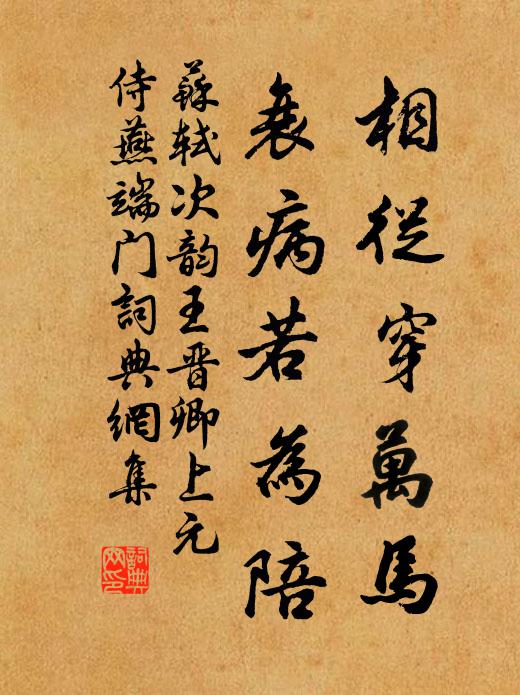 相從穿萬馬
衰病若為陪
蘇軾次韵王晋卿上元
侍燕端门詞典網集
詞典网印